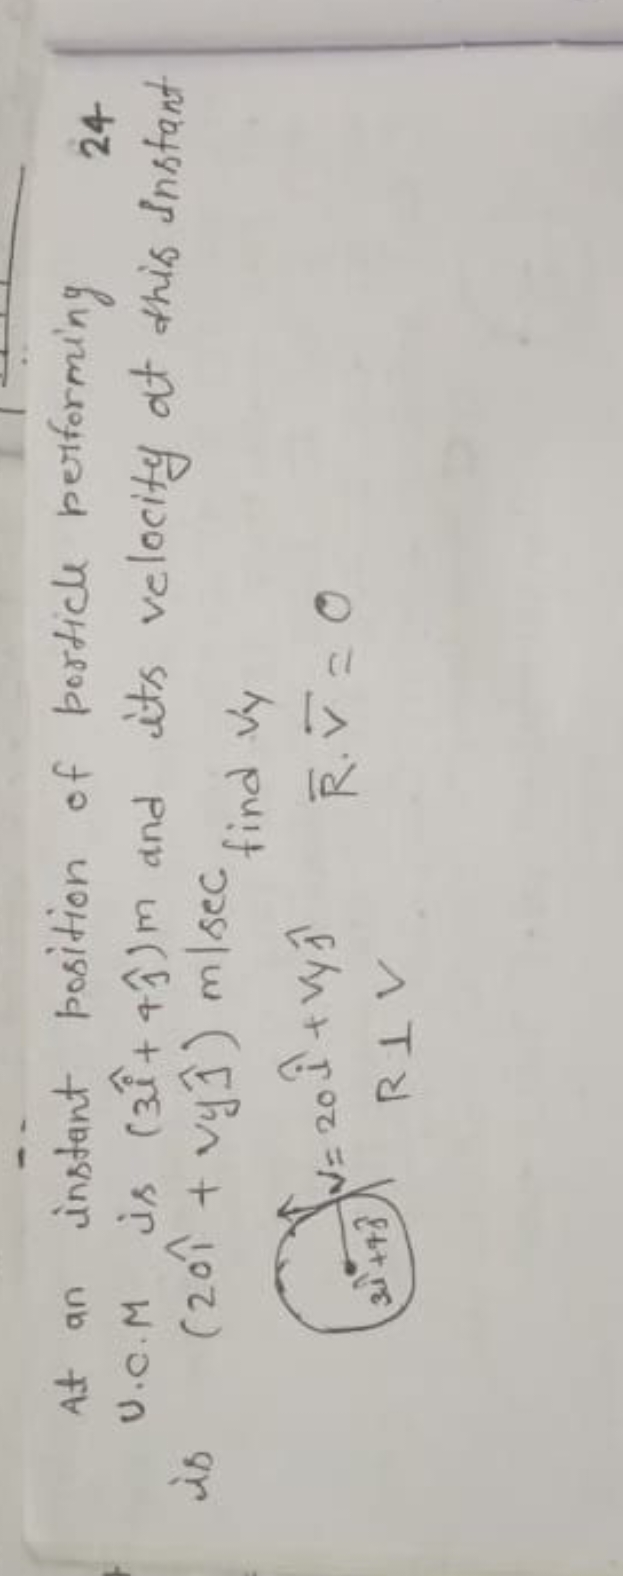 At an instant position of particle performing 24
U.C.M is (3î + 4ĵ)m and its velocity at this instant
is (20î + vyĵ) m/sec find vy
v = 20î + vyĵ R̅.v̅ = 0
3î+4ĵ R ⊥ V